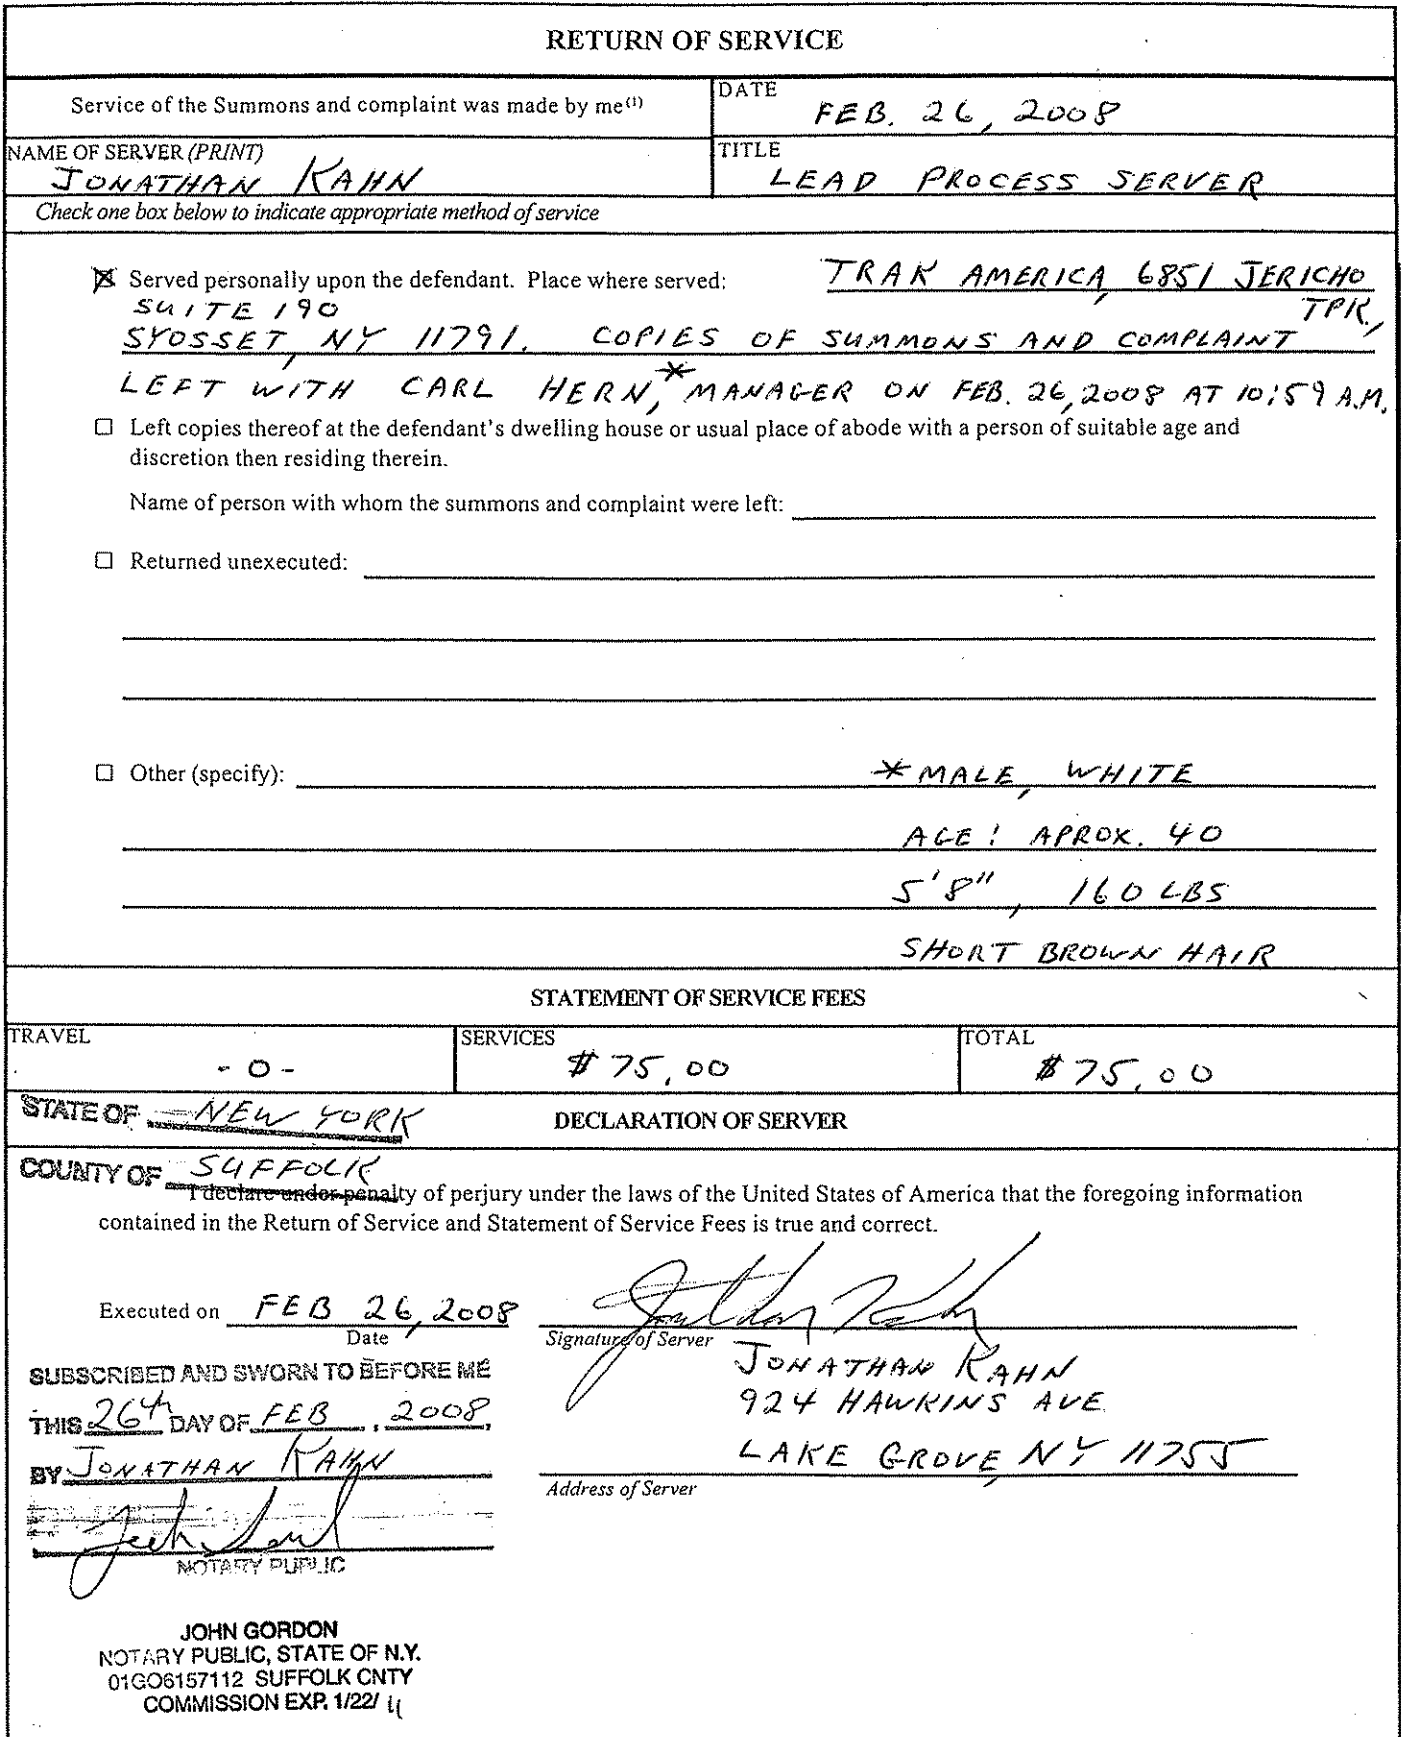 RETURN OF SERVICE
Service of the Summons and complaint was made by me(1)
DATE
FEB. 26, 2008
NAME OF SERVER (PRINT)
JONATHAN KAHN
TITLE
LEAD PROCESS SERVER
Check one box below to indicate appropriate method of service
☒ Served personally upon the defendant. Place where served: TRAK AMERICA, 6851 JERICHO TPK.,
SUITE 190
SYOSSET, NY 11791. COPIES OF SUMMONS AND COMPLAINT
LEFT WITH CARL HERN,* MANAGER ON FEB. 26, 2008 AT 10:59 A.M.
☐ Left copies thereof at the defendant's dwelling house or usual place of abode with a person of suitable age and
discretion then residing therein.
Name of person with whom the summons and complaint were left:
☐ Returned unexecuted:
☐ Other (specify): * MALE, WHITE
AGE: APROX. 40
5'8", 160 LBS
SHORT BROWN HAIR
STATEMENT OF SERVICE FEES
TRAVEL
- 0 -
SERVICES
$75.00
TOTAL
$75.00
STATE OF NEW YORK
DECLARATION OF SERVER
COUNTY OF SUFFOLK
I declare under penalty of perjury under the laws of the United States of America that the foregoing information
contained in the Return of Service and Statement of Service Fees is true and correct.
Executed on FEB 26, 2008
Date
Signature of Server
JONATHAN KAHN
924 HAWKINS AVE
LAKE GROVE, NY 11755
Address of Server
SUBSCRIBED AND SWORN TO BEFORE ME
THIS 26th DAY OF FEB, 2008,
BY JONATHAN KAHN
NOTARY PUBLIC
JOHN GORDON
NOTARY PUBLIC, STATE OF N.Y.
01GO6157112 SUFFOLK CNTY
COMMISSION EXP. 1/22/11